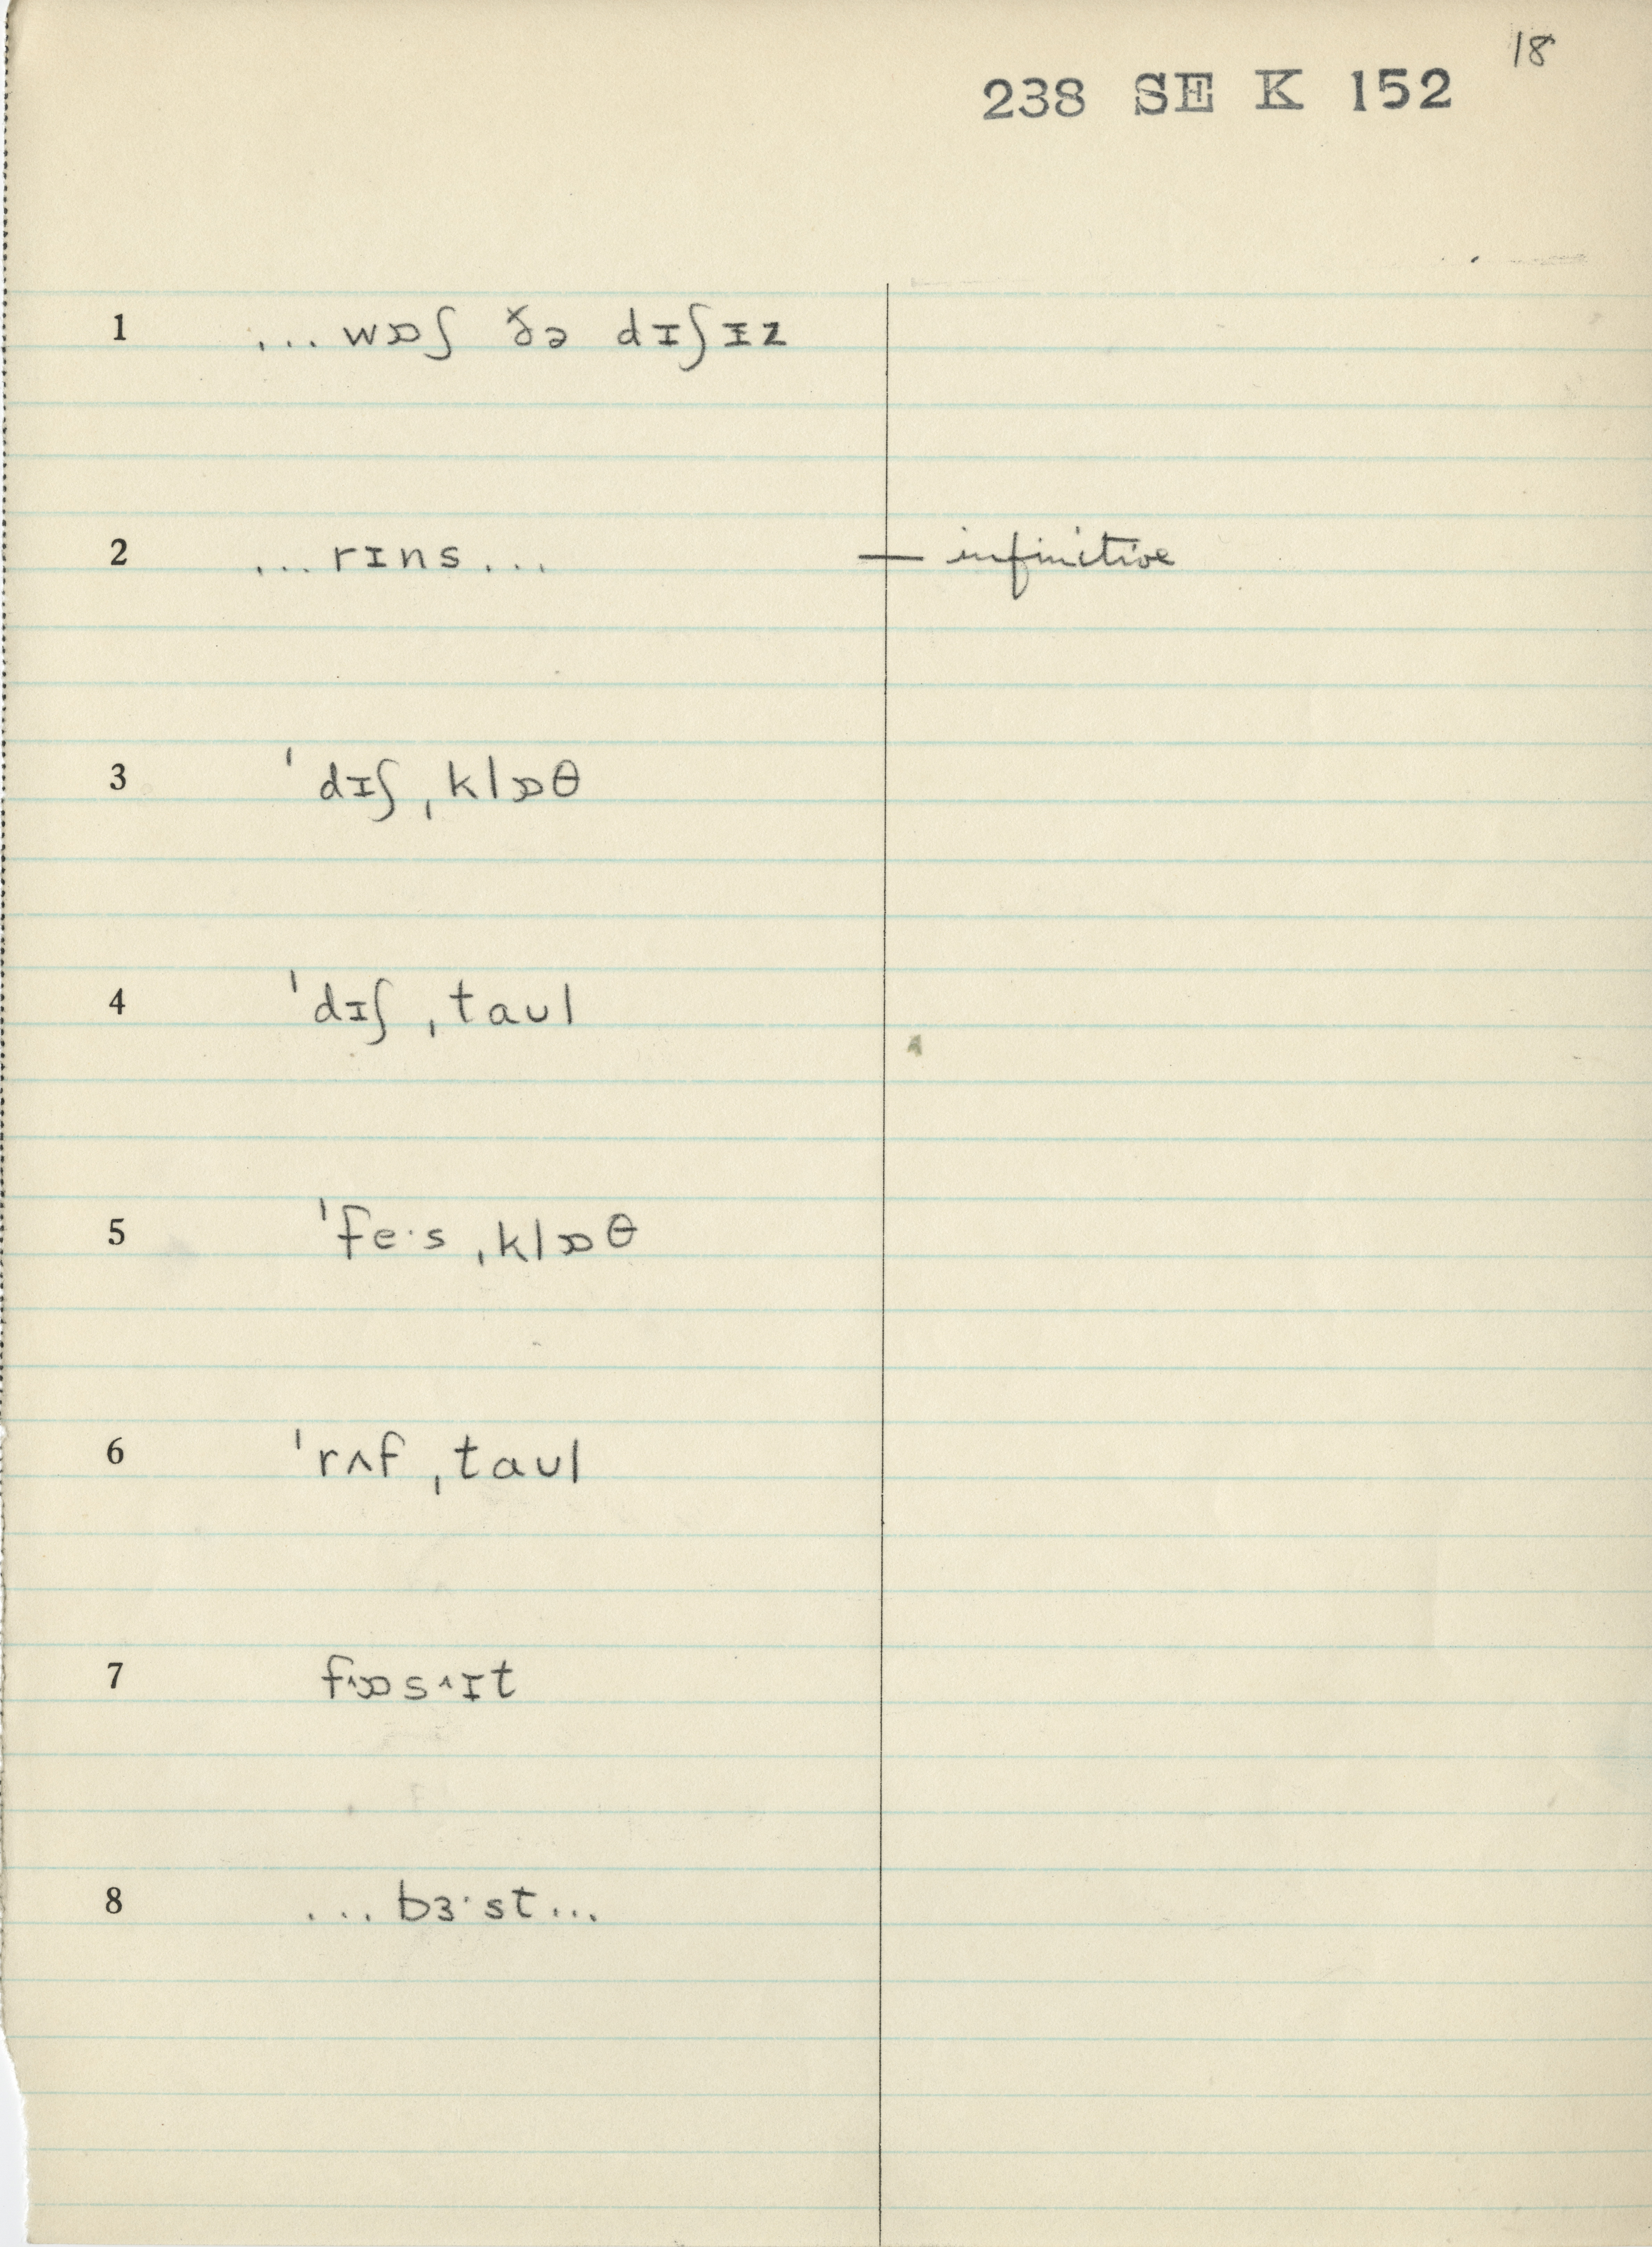 18
238 SE K 152
1 ...wɒʃ ðə dɪʃɪz
2 ...rɪns... — infinitive
3 ˈdɪʃˌklɒθ
4 ˈdɪʃˌtaʊl
5 ˈfe·sˌklɒθ
6 ˈrʌfˌtaʊl
7 f^ɒs^ɪt
8 ...bɜ·st...